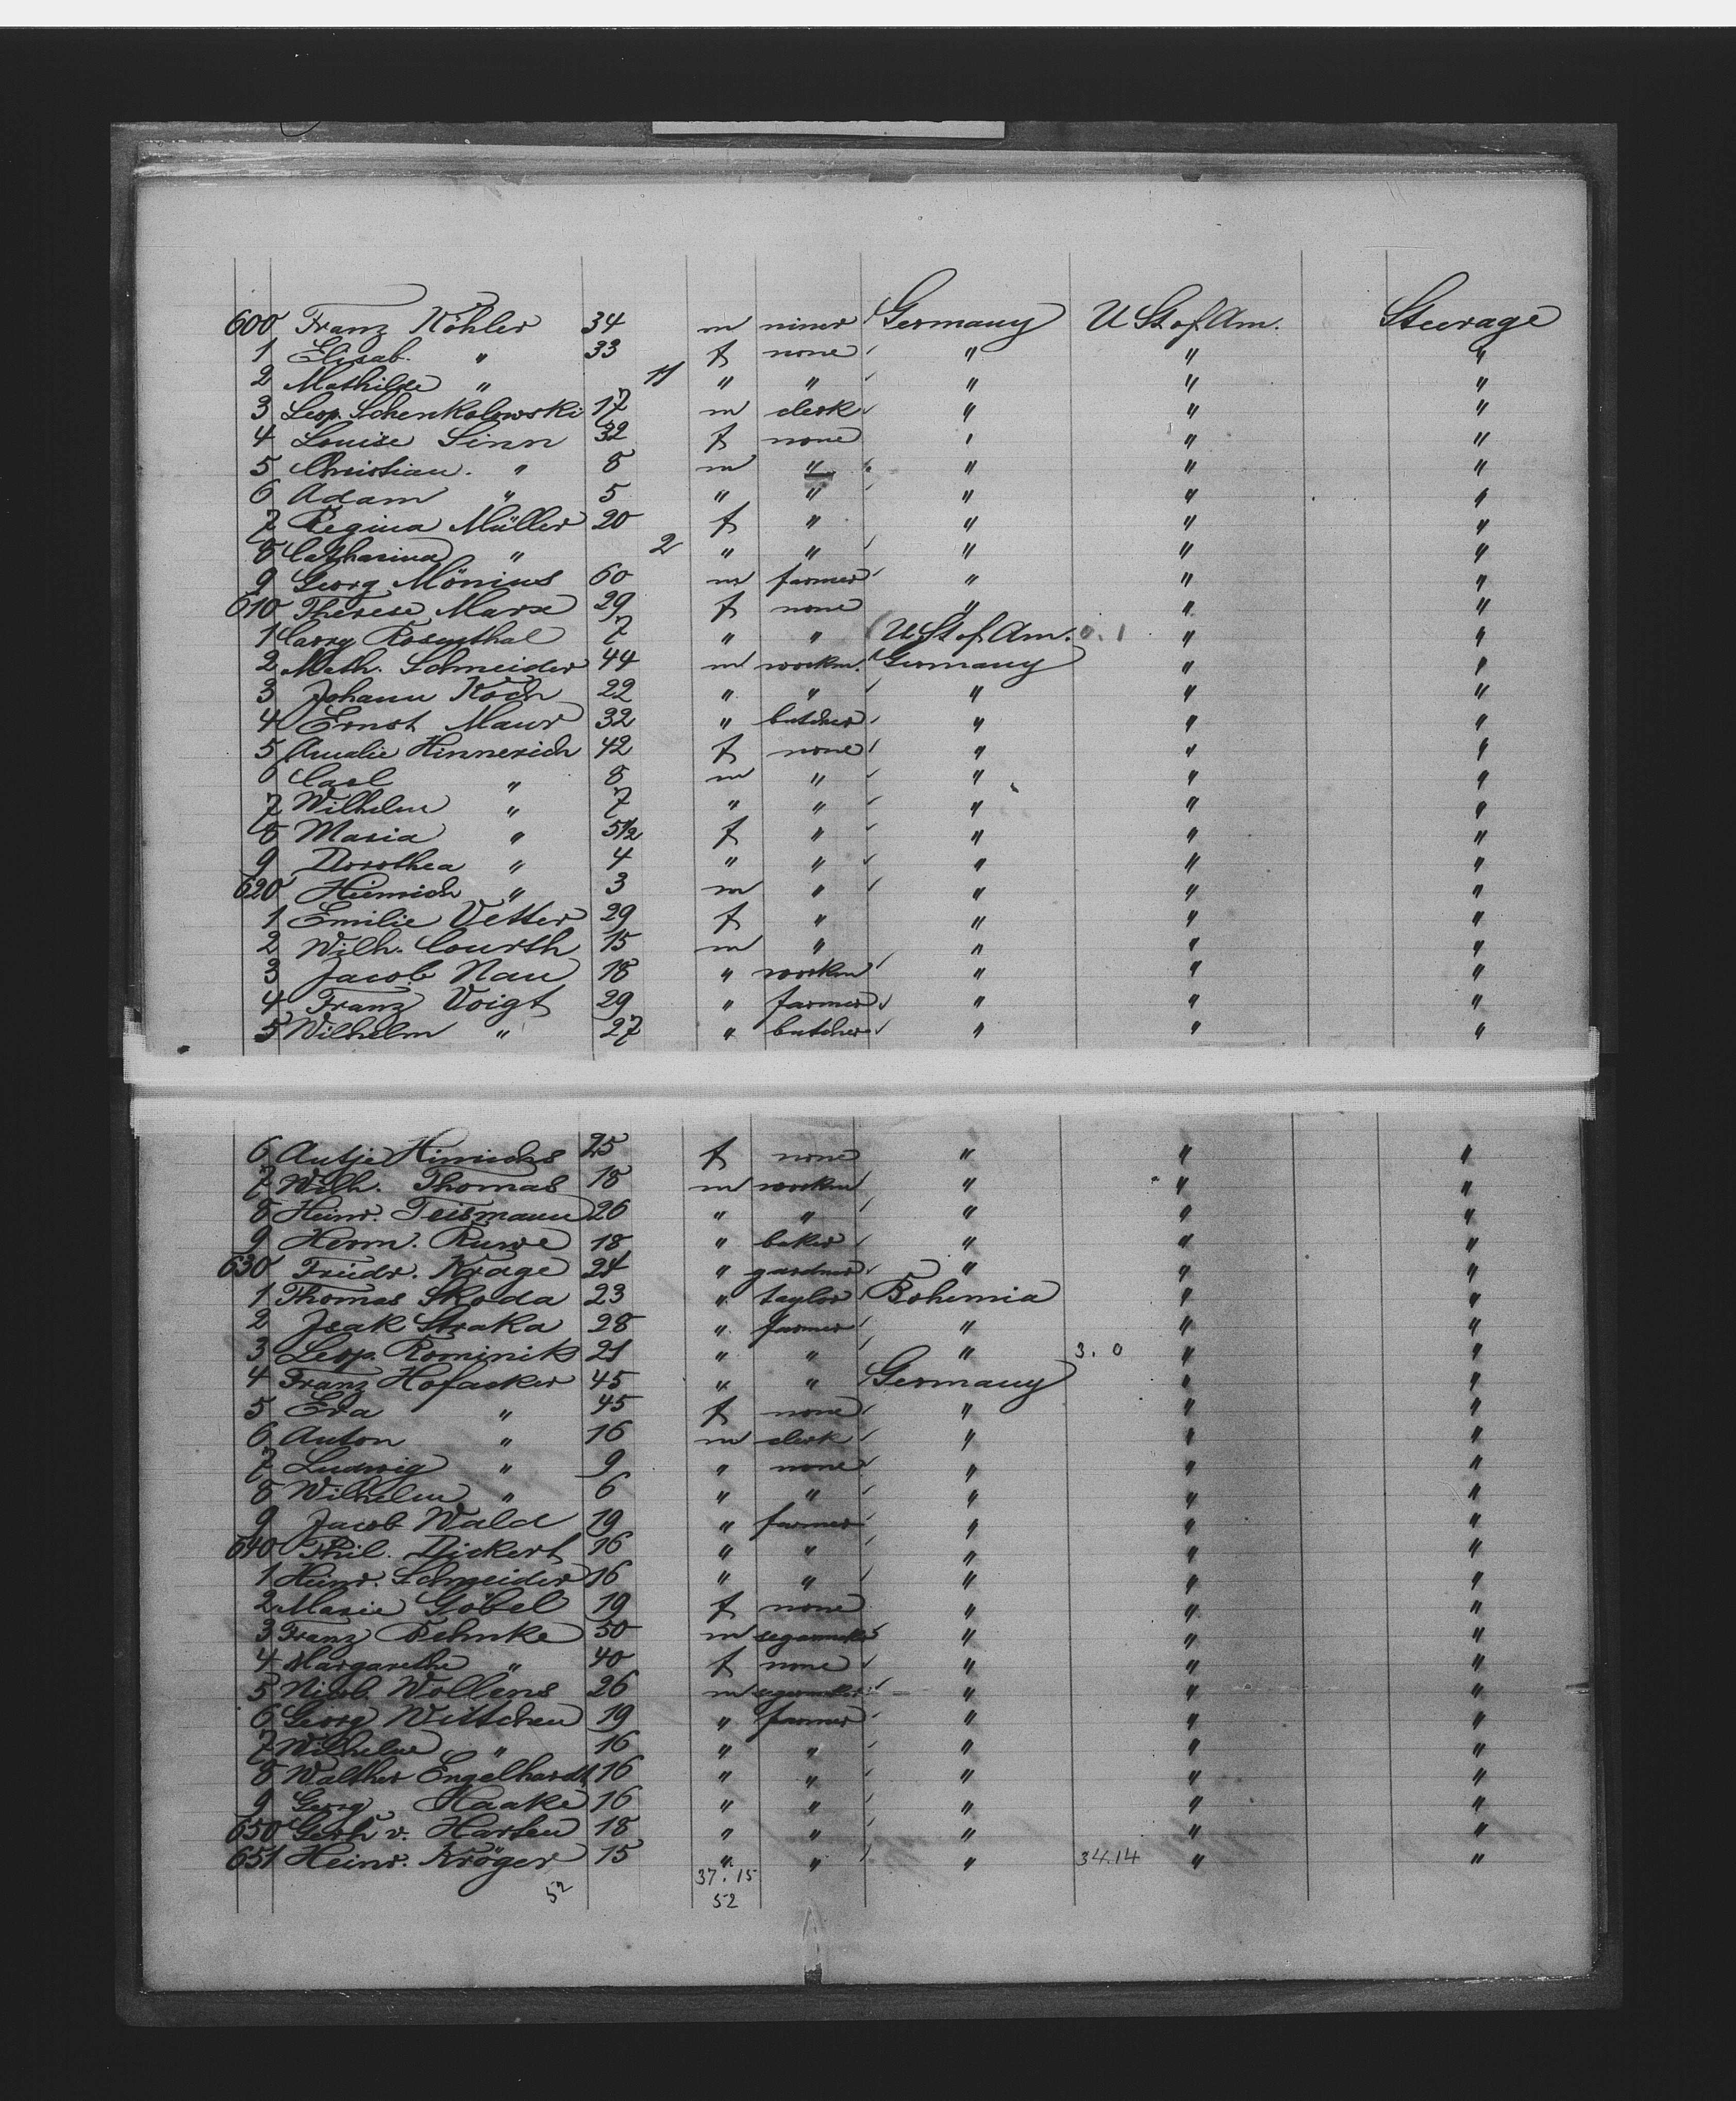 600 Franz Köhler 34 m miner Germany U St of Am. Steerage
1 Elisab. " 33 f none " " "
2 Mathilde " 11 " " " " "
3 Leop. Schenkolowski 17 m clerk " " "
4 Louise Sinn 32 f none " " "
5 Christian " 8 m " " " "
6 Adam " 5 " " " " "
7 Regina Müller 20 f " " " "
8 Catharina " 2 " " " " "
9 Georg Mönius 60 m farmer " " "
610 Therese Marx 29 f none " " "
1 Carry Rosenthal 7 " " U St of Am. 0.1 " "
2 Math. Schneider 44 m workm. Germany " "
3 Johann Koch 22 " " " " "
4 Ernst Maur 32 " butcher " " "
5 Amalie Hinnerich 42 f none " " "
6 Carl " 8 m " " " "
7 Wilhelm " 7 " " " " "
8 Maria " 5 1/2 f " " " "
9 Dorothea " 4 " " " " "
620 Heinrich " 3 m " " " "
1 Emilie Vetter 29 f " " " "
2 Wilh. Courth 15 m " " " "
3 Jacob Nau 18 " workm " " "
4 Franz Voigt 29 " farmer " " "
5 Wilhelm " 27 " butcher " " "
6 Antje Hinrichs 25 f none " " "
7 Wilh. Thomas 18 m workm " " "
8 Heinr. Teismann 26 " " " " "
9 Herm. Ruwe 18 " baker " " "
630 Friedr. Krage 24 " gardner " " "
1 Thomas Skoda 23 " taylor Bohemia " "
2 Isak Straka 28 " farmer " " "
3 Leop. Rominik 21 " " " 3.0 " "
4 Franz Hofacker 45 " " Germany " "
5 Eva " 45 f none " " "
6 Anton " 16 m clerk " " "
7 Ludwig " 9 " none " " "
8 Wilhelm " 6 " " " " "
9 Jacob Wald 19 " farmer " " "
640 Phil. Dickert 16 " " " " "
1 Heinr. Schneider 16 " " " " "
2 Marie Göbel 19 f none " " "
3 Franz Behnke 50 m " " "
4 Margarethe " 40 f none " " "
5 Nicol. Wollens 26 m " " "
6 Georg Wittchen 19 " farmer " " "
7 Wilhelm " 16 " " " " "
8 Walther Engelhardt 16 " " " " "
9 Georg Haake 16 " " " " "
650 Gerh v. Harten 18 " " " " "
651 Heinr. Kröger 15 " " " 34.14 " "
52 37.15
52